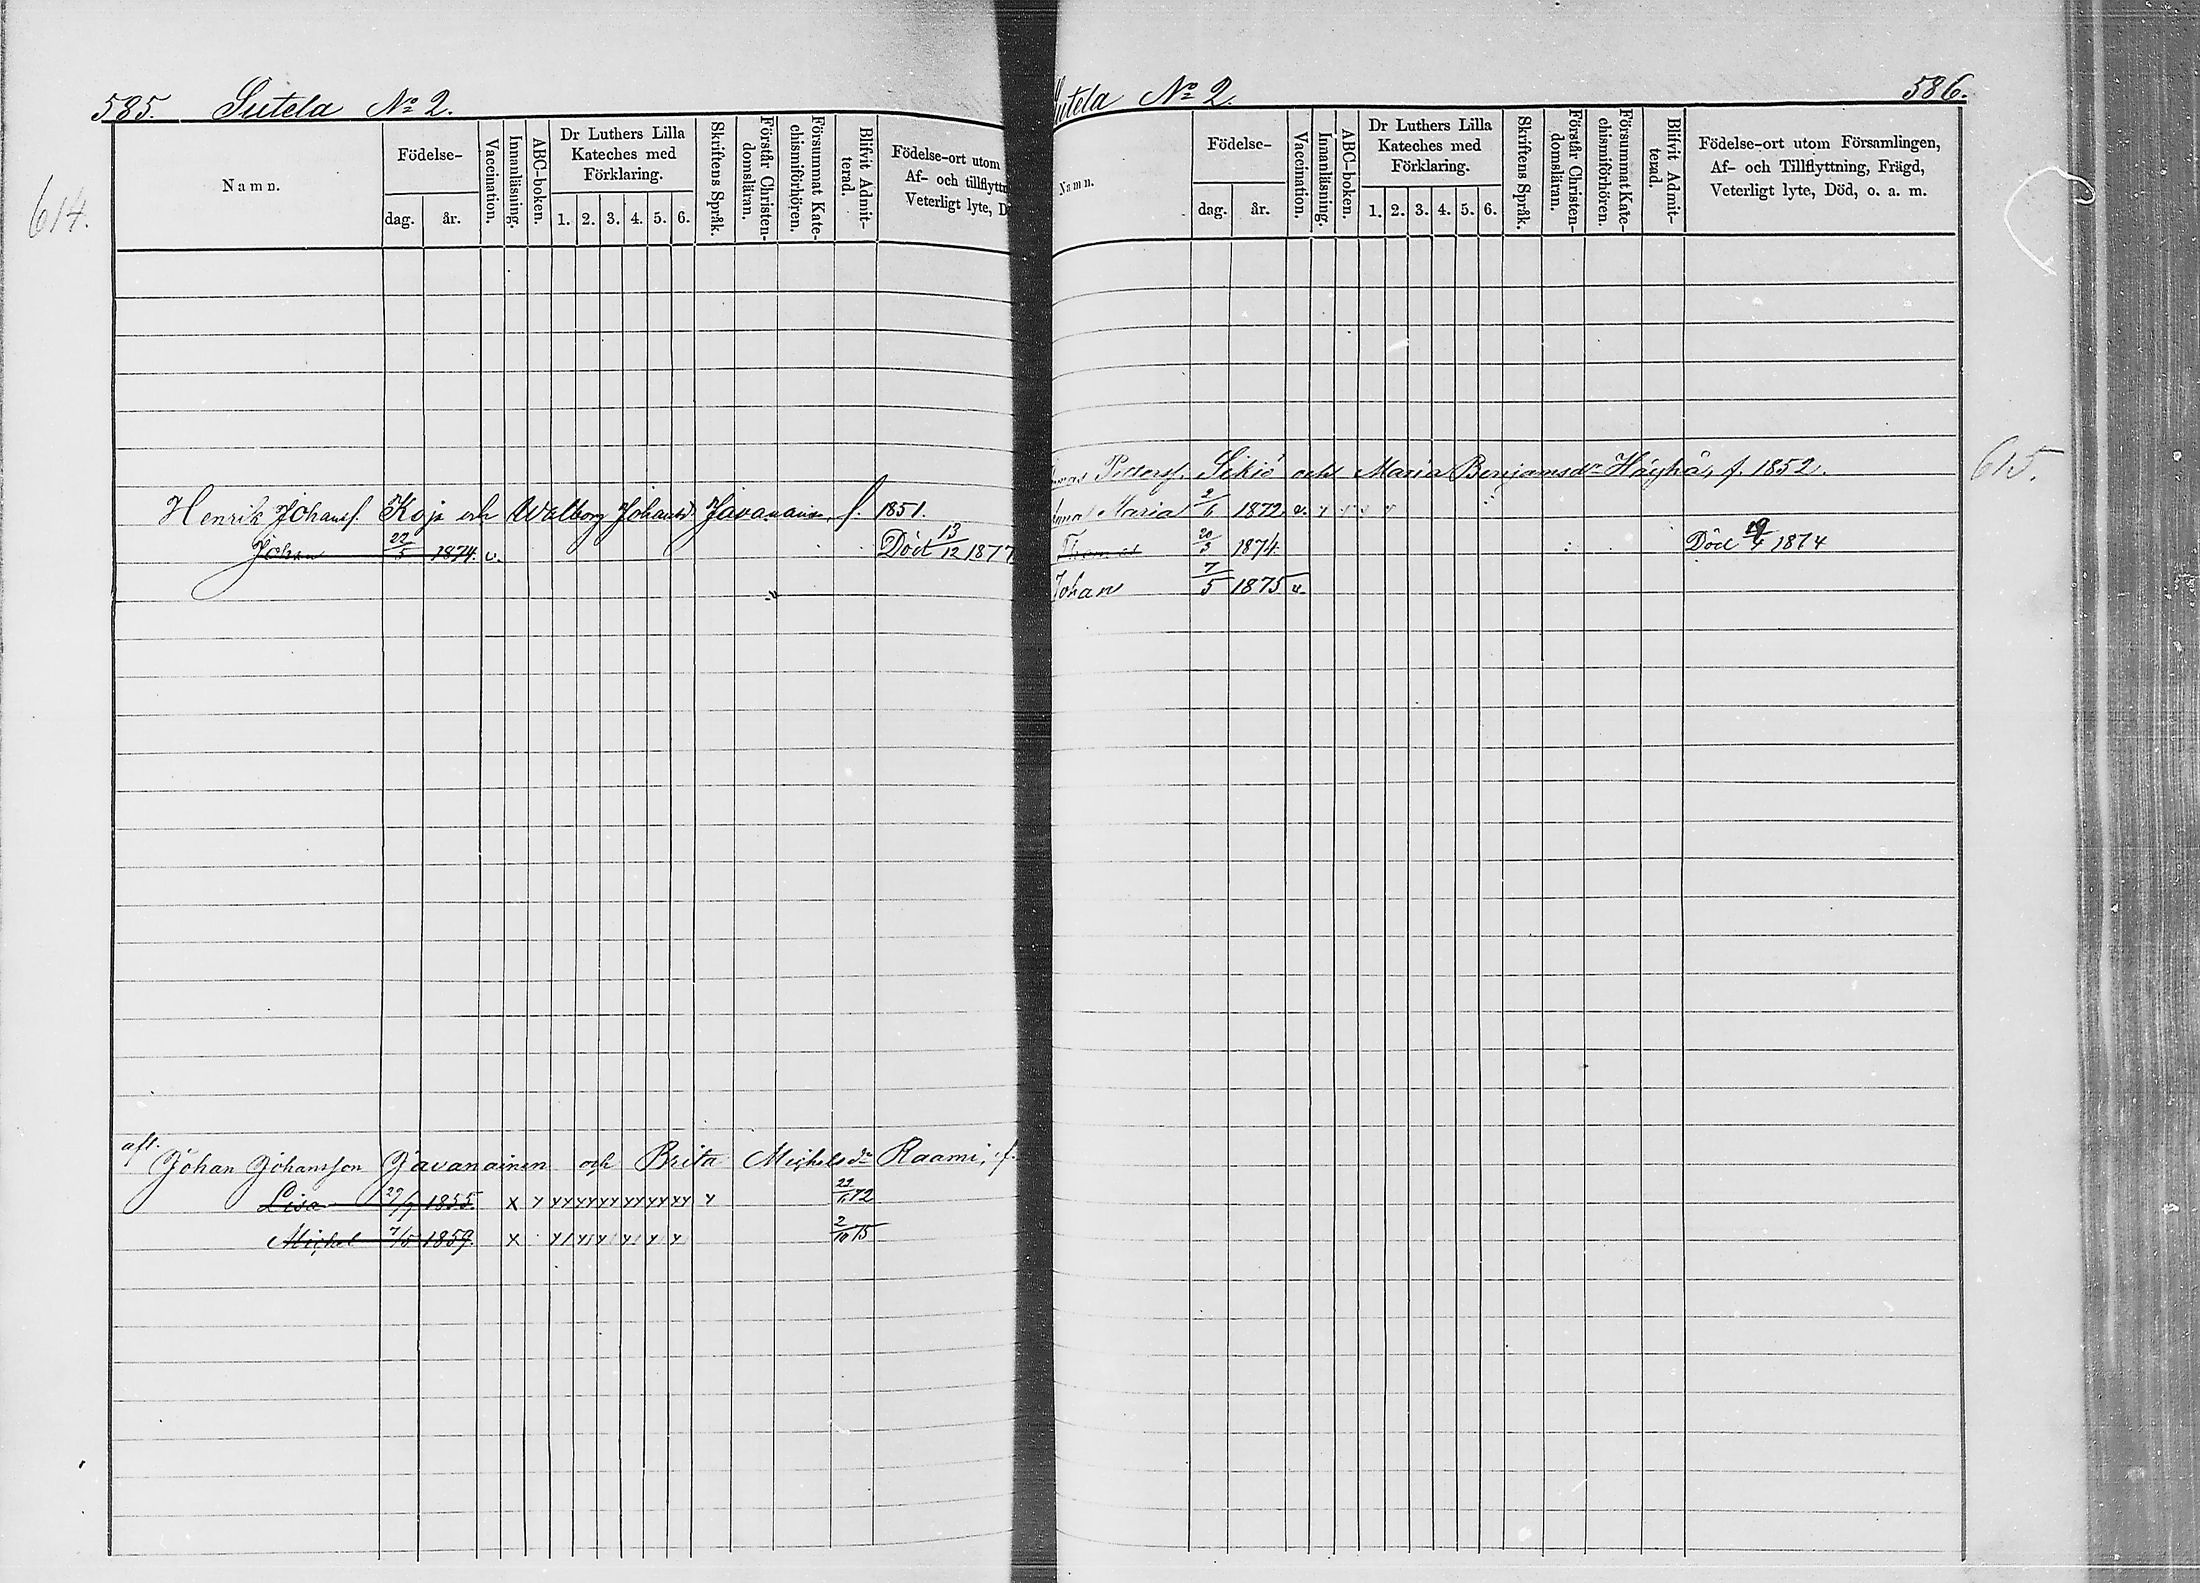 585. Sutela № 2.
614.
Namn.
Födelse-
dag. år.
Vaccination.
Innanläsning.
ABC-boken.
Dr Luthers Lilla
Kateches med
Förklaring.
1. 2. 3. 4. 5. 6.
Skriftens Språk.
Förstår Christen-
domsläran.
Försummat Kate-
chismiförhören.
Blifvit Admit-
terad.
Födelse-ort utom
Af- och tillflyttn
Veterligt lyte, D
Henrik Johansf. Koja och Walborg Johansd. Javanainen, f. 1851.
Johan 22/5 1874. v. Död 13/12 1877
afl.
Johan Johansson Javanainen och Brita Michelsdr Raami, f.
Lisa 29/9 1855. x y yy yy yy yy yy yy y 72
Michel 7/5 1859. x 2/10 75
utela № 2. 586.
615.
Namn.
Födelse-
dag. år.
Vaccination.
Innanläsning.
ABC-boken.
Dr Luthers Lilla
Kateches med
Förklaring.
1. 2. 3. 4. 5. 6.
Skriftens Språk.
Förstår Christen-
domsläran.
Försummat Kate-
chismiförhören.
Blifvit Admit-
terad.
Födelse-ort utom Församlingen,
Af- och Tillflyttning, Frägd,
Veterligt lyte, Död, o. a. m.
Pettersf. Sikiö och Maria Benjamsdr Häyhä, f. 1852.
nna Maria 2/6 1872 v. y
Thomas 20/3 1874. Död 19/4 1874
Johan 7/5 1875 v.